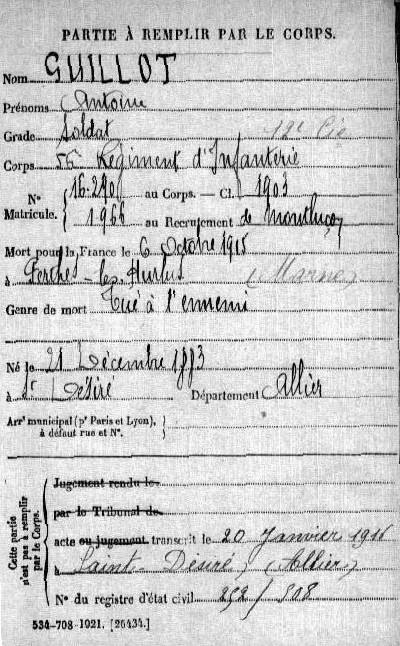 PARTIE À REMPLIR PAR LE CORPS.
Nom GUILLOT
Prénoms Antoine
Grade Soldat 12e Cie
Corps 56e Régiment d'Infanterie
N° Matricule. { 16.290 au Corps. — Cl. 1903
1966 au Recrutement de Montluçon
Mort pour la France le 6 Octobre 1915
à Perthes-les-Hurlus (Marne)
Genre de mort Tué à l'ennemi
Né le 21 Décembre 1883
à St Désiré Département Allier
Arrt municipal (pr Paris et Lyon), à défaut rue et N°. }
Cette partie n'est pas à remplir par le Corps.
Jugement rendu le
par le Tribunal de
acte ou jugement transcrit le 20 Janvier 1916
à Saint-Désiré, (Allier)
N° du registre d'état civil 292/508
534-708-1921. [26434.]